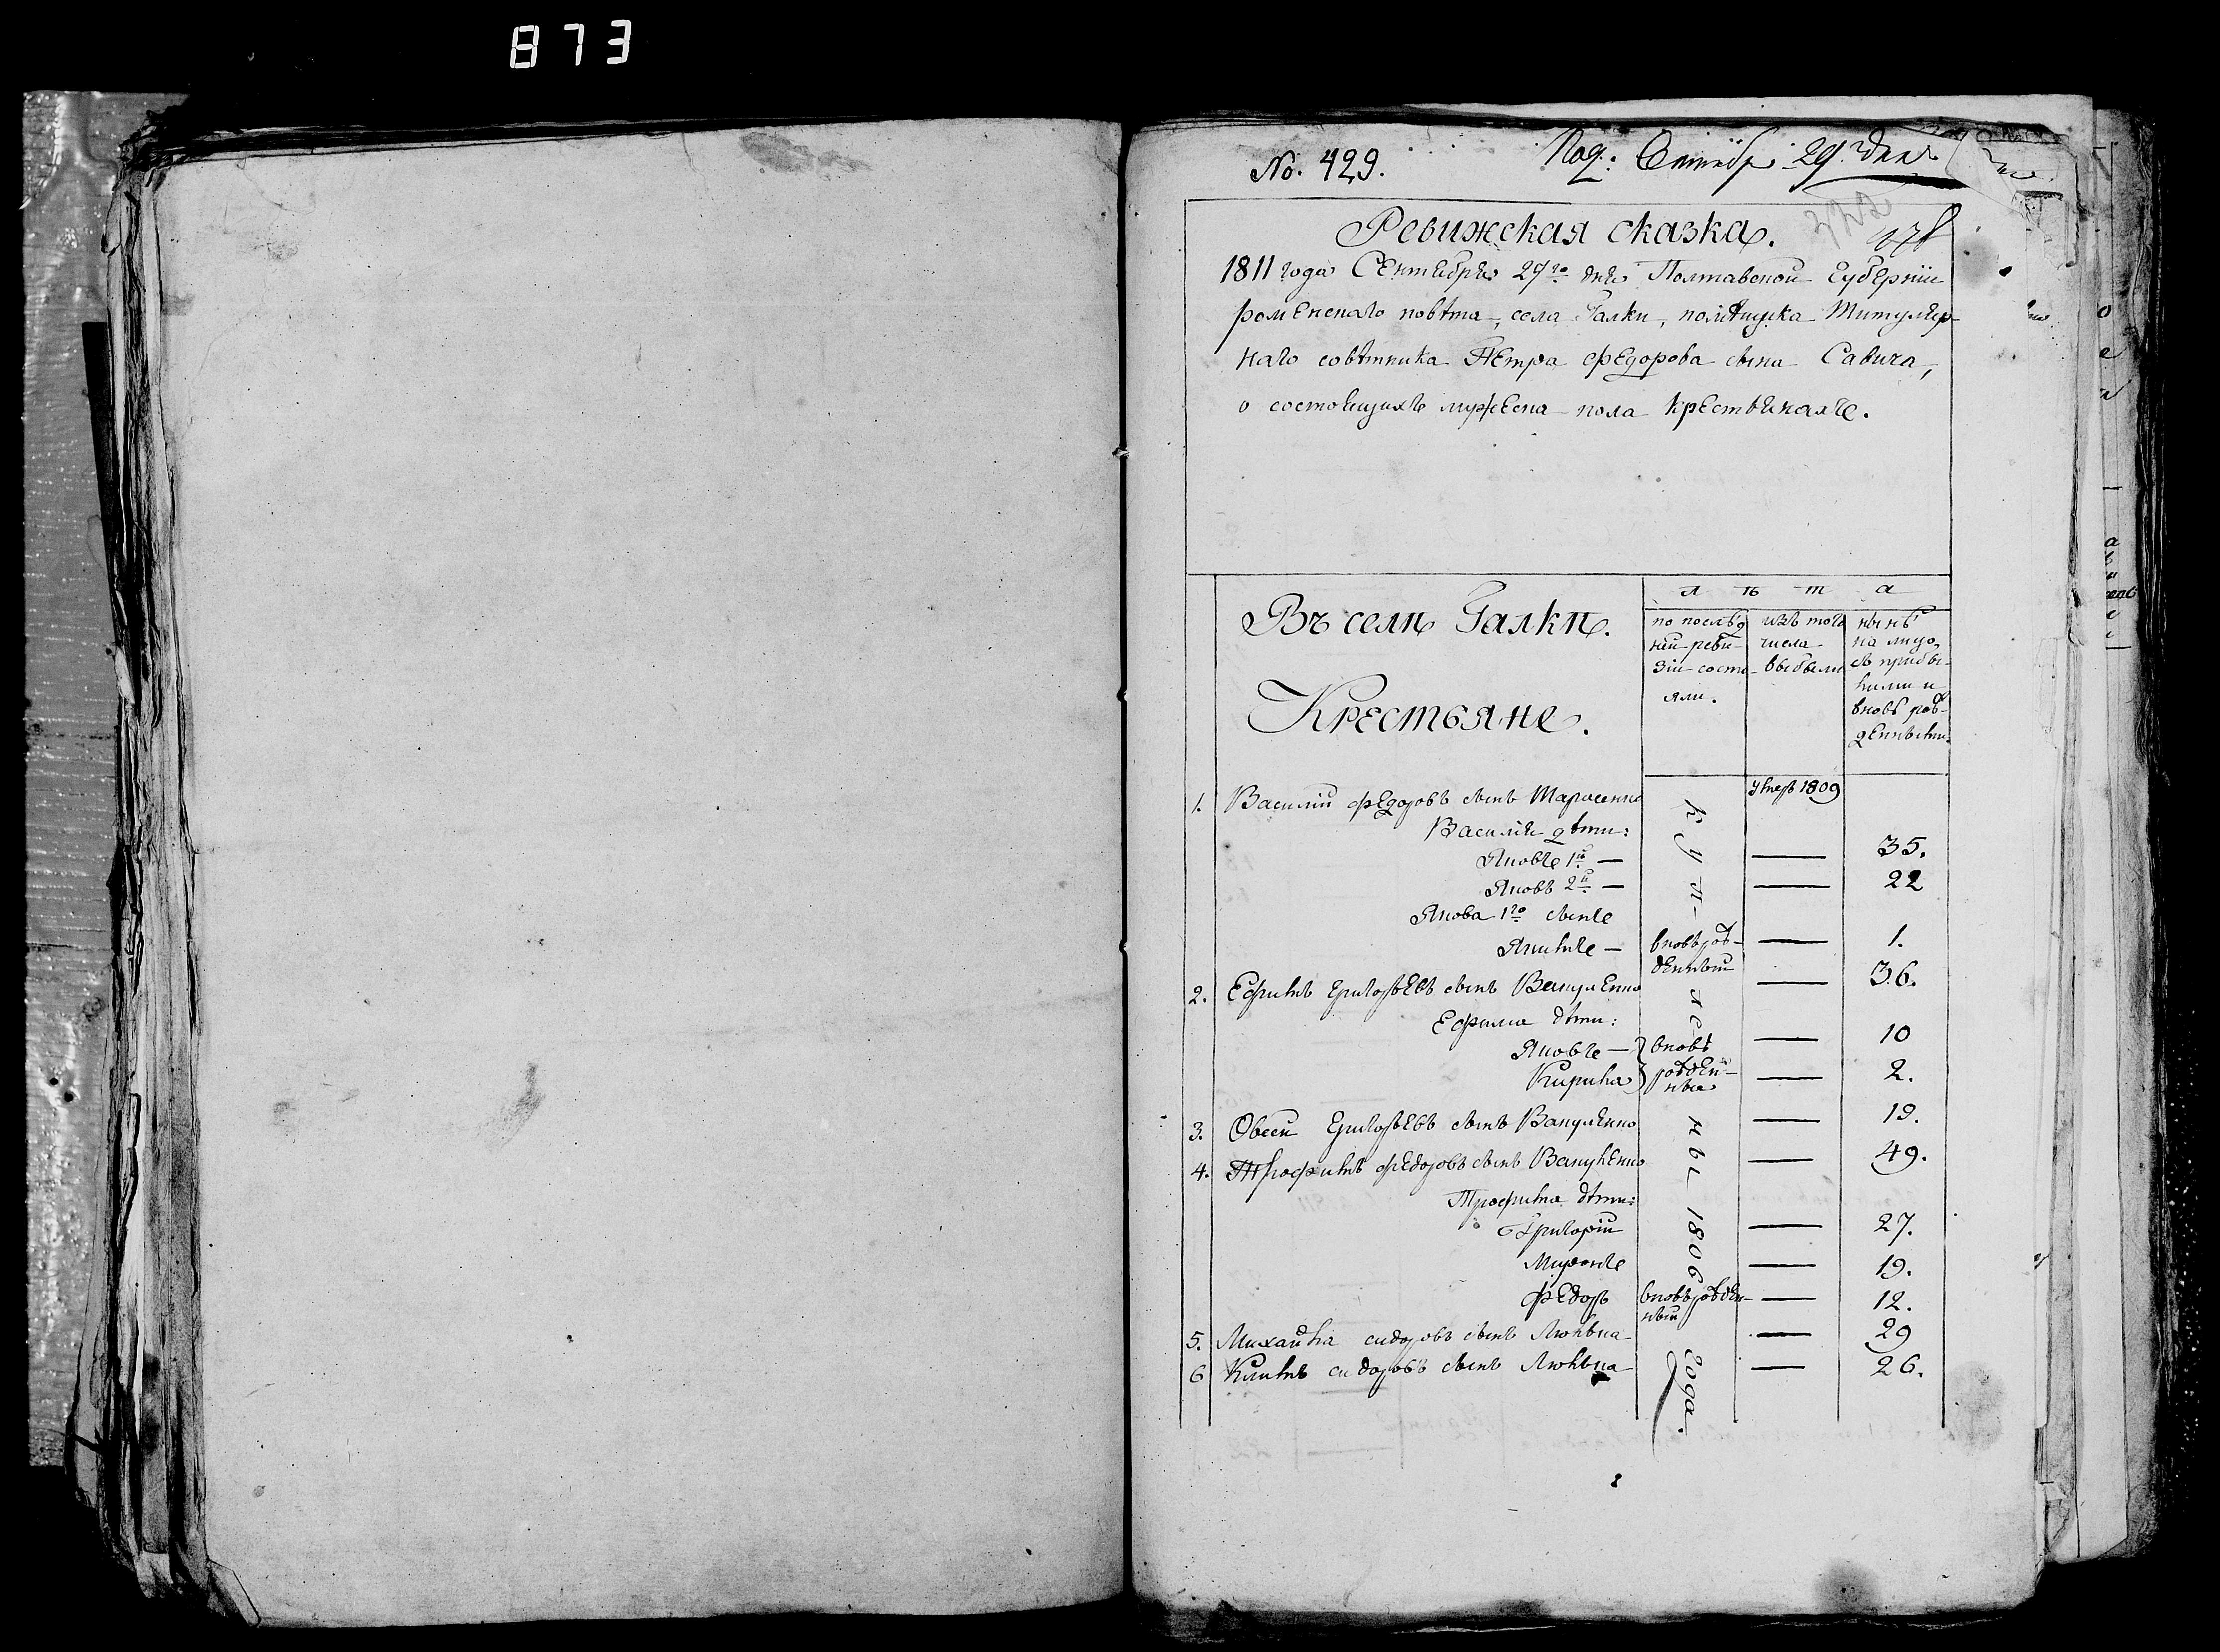 873
No. 429.
Под: Сентябр 29 дня
Ревижская сказка.
1811 года Сентября 29го дня Полтавской Губерніи
роменскаго повѣта, села Галки, помѣщика Титуляр-
наго совѣтника Петра Федорова сына Савича,
о состоящихъ мужеска пола крестьянахъ.
Въ селѣ Галкѣ.
Крестьяне.
лѣта
по послѣд
ней реви-
зіи состо-
яли.
изъ того
числа
выбыли
нынѣ
на лицо
съ прибы-
лыми и
вновь рож-
денными.
1. Василий Федоровъ сынъ Тарасенко умеръ 1809
Василія дѣти:
Яковъ 1й — — 35.
Яковъ 2й — — 22
Якова 1го сынъ
Якимъ — вновьрож- — 1.
денный
2. Ефимъ Григорьевъ сынъ Вакуленко — 36.
Ефима дѣти:
Яковъ — вновь — 10
Кирила рожден- — 2.
ные
3. Овсей Григорьевъ сынъ Вакуленко — 19.
4. Трофимъ Федоровъ сынъ Вакуленко — 49.
Трофима дѣти:
Григорій — 27.
Миронъ — 19.
Федоръ вновьрожден- — 12.
ный
5. Михайла Сидоровъ сынъ — 29
6 Климъ Сидоровъ сынъ — 26.
купленны 1806 года.